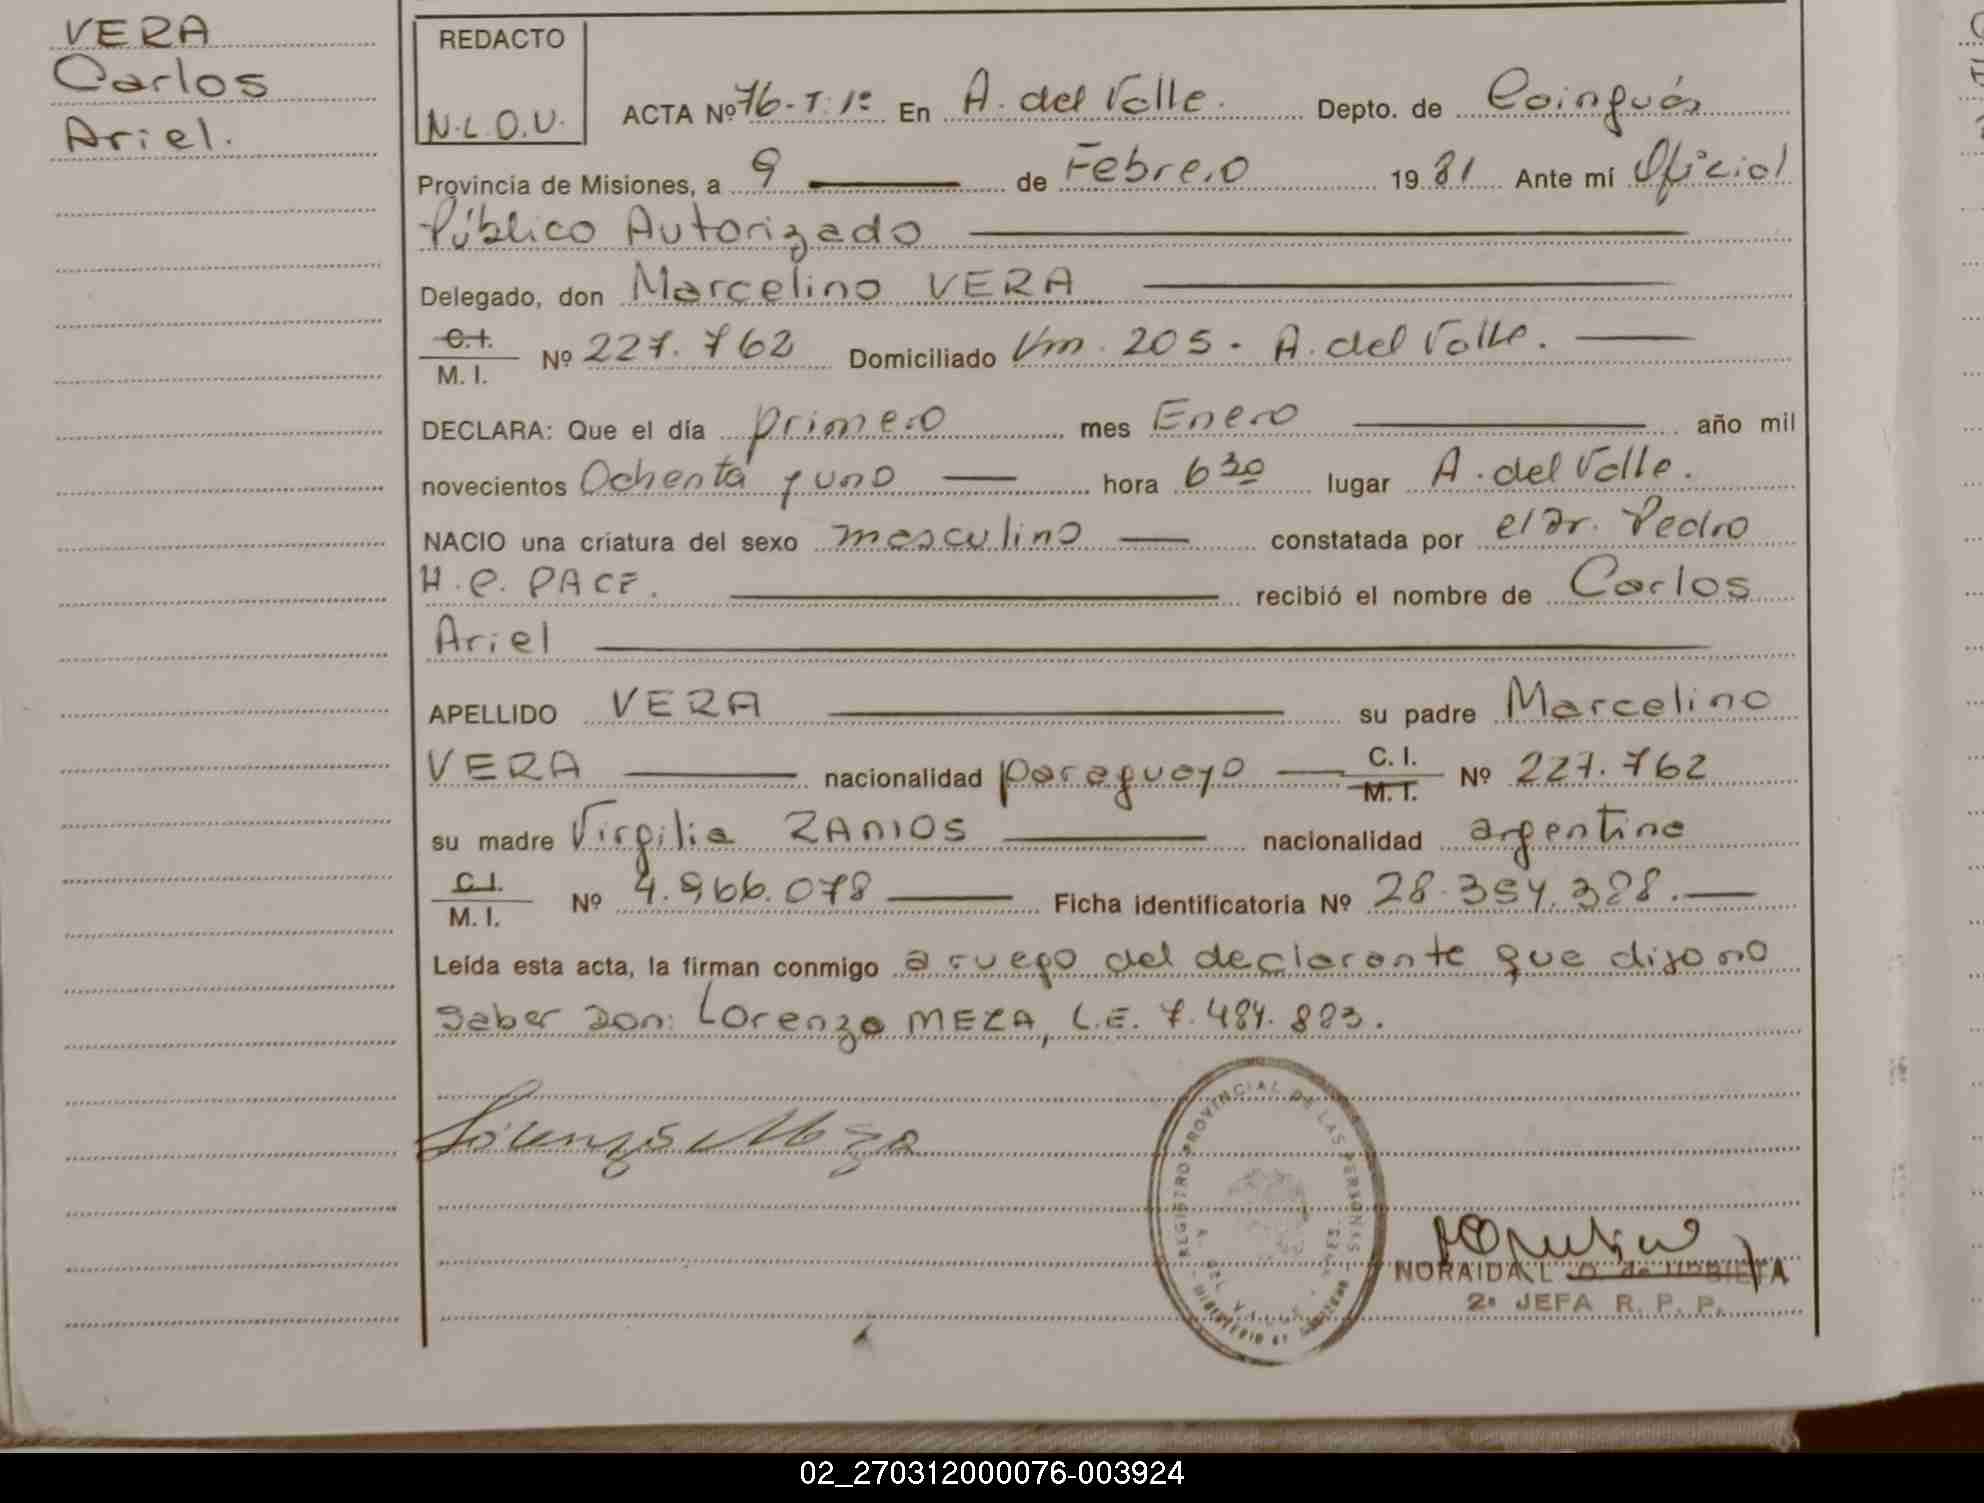 VERA
Carlos
Ariel.
REDACTO
N.L.O.U.
ACTA Nº 76-T:1º En A. del Valle. Depto. de Cainguás
Provincia de Misiones, a 9 de Febrero 1981 Ante mí Oficial
Público Autorizado
Delegado, don Marcelino VERA
C.I. / M. I. Nº 227.762 Domiciliado Km. 205 - A. del Valle.
DECLARA: Que el día primero mes Enero año mil
novecientos Ochenta y uno hora 6 30 lugar A. del Valle.
NACIO una criatura del sexo masculino constatada por el Dr. Pedro
H.C. PACE. recibió el nombre de Carlos
Ariel
APELLIDO VERA su padre Marcelino
VERA nacionalidad paraguayo C. I. / M. I. Nº 227.762
su madre Virgilia nacionalidad argentina
C.I. / M. I. Nº 4.966.078 Ficha identificatoria Nº 28.354.328.
Leída esta acta, la firman conmigo a ruego del declarante que dijo no
saber Don: Lorenzo MEZA, L.E. 7.484.883.
Lorenzo Meza
REGISTRO PROVINCIAL DE LAS PERSONAS
DEL VALLE
NORAIDA L. O. de URBIETA
2ª JEFA R. P. P.
02_270312000076-003924